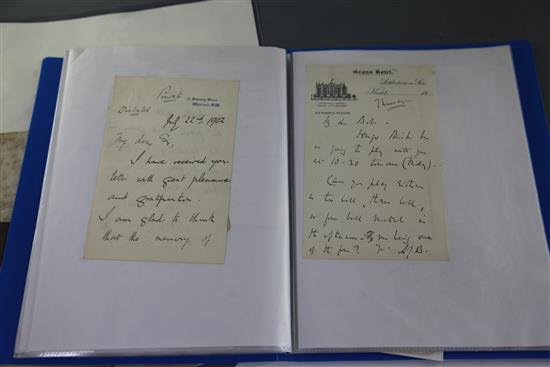 Private
10 Downing Street,
Whitehall, S.W.
July 22nd, 1902
My dear Sir,
I have received your
letter with great pleasure
and gratification.
I am glad to think
that the memory of
Grand Hotel,
Littlestone on Sea,
Kent,
Thursday
My dear Bob.
Hugo thinks he
is going to play with you
at 10.30 tomorrow (Friday).
Can you play either
a two ball, three ball,
or four ball match in
the afternoon - my being one
of the four? Yrs AJB.